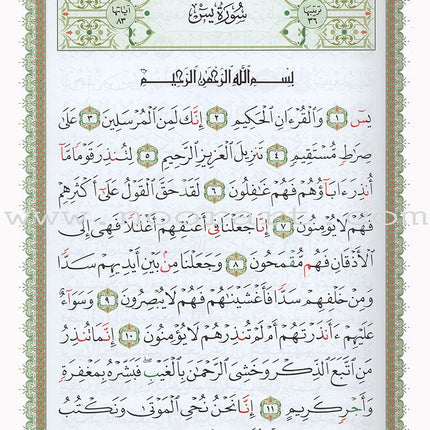 ترتيبها ٣٦ سُورَةُ يسٓ آياتها ٨٣
بِسْمِ ٱللَّهِ ٱلرَّحْمَٰنِ ٱلرَّحِيمِ
يسٓ ١ وَٱلْقُرْءَانِ ٱلْحَكِيمِ ٢ إِنَّكَ لَمِنَ ٱلْمُرْسَلِينَ ٣ عَلَىٰ
صِرَٰطٍ مُّسْتَقِيمٍ ٤ تَنزِيلَ ٱلْعَزِيزِ ٱلرَّحِيمِ ٥ لِتُنذِرَ قَوْمًا مَّآ
أُنذِرَ ءَابَآؤُهُمْ فَهُمْ غَٰفِلُونَ ٦ لَقَدْ حَقَّ ٱلْقَوْلُ عَلَىٰٓ أَكْثَرِهِمْ
فَهُمْ لَا يُؤْمِنُونَ ٧ إِنَّا جَعَلْنَا فِىٓ أَعْنَٰقِهِمْ أَغْلَٰلًا فَهِىَ إِلَى
ٱلْأَذْقَانِ فَهُم مُّقْمَحُونَ ٨ وَجَعَلْنَا مِنۢ بَيْنِ أَيْدِيهِمْ سَدًّا
وَمِنْ خَلْفِهِمْ سَدًّا فَأَغْشَيْنَٰهُمْ فَهُمْ لَا يُبْصِرُونَ ٩ وَسَوَآءٌ
عَلَيْهِمْ ءَأَنذَرْتَهُمْ أَمْ لَمْ تُنذِرْهُمْ لَا يُؤْمِنُونَ ١٠ إِنَّمَا تُنذِرُ
مَنِ ٱتَّبَعَ ٱلذِّكْرَ وَخَشِىَ ٱلرَّحْمَٰنَ بِٱلْغَيْبِ ۖ فَبَشِّرْهُ بِمَغْفِرَةٍ
وَأَجْرٍ كَرِيمٍ ١١ إِنَّا نَحْنُ نُحْىِ ٱلْمَوْتَىٰ وَنَكْتُبُ